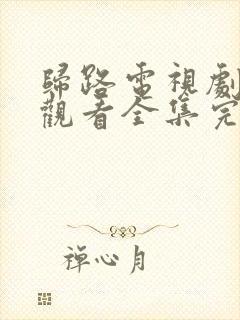 歸路電視劇
觀看全集完
禪心月